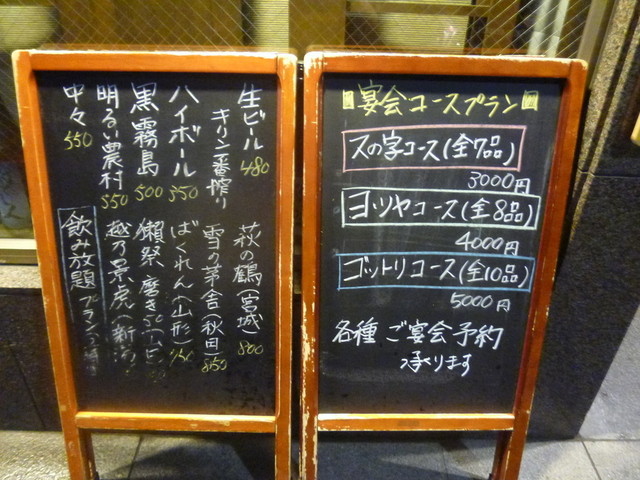 生ビール
キリン一番搾り
480
ハイボール
350
黒霧島
500
明るい農村
550
中々
550
萩の鶴(宮城)
800
雪の茅舎(秋田)
850
ばくれん(山形)
獺祭 磨き
越乃景虎(新潟)
飲み放題
プラン
宴会コースプラン
スの字コース(全7品)
3000円
ヨツヤコース(全8品)
4000円
ゴットリコース(全10品)
5000円
各種 ご宴会予約
承ります